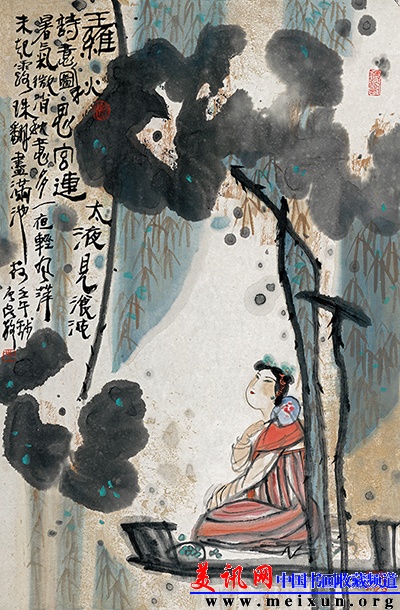 王涯秋思
詩意圖
宮連
太液見滄波
暑氣微清秋意多一夜輕風蘋
末起露珠翻盡滿池荷
壬午
美讯网 中国书画收藏频道
www.meixun.org